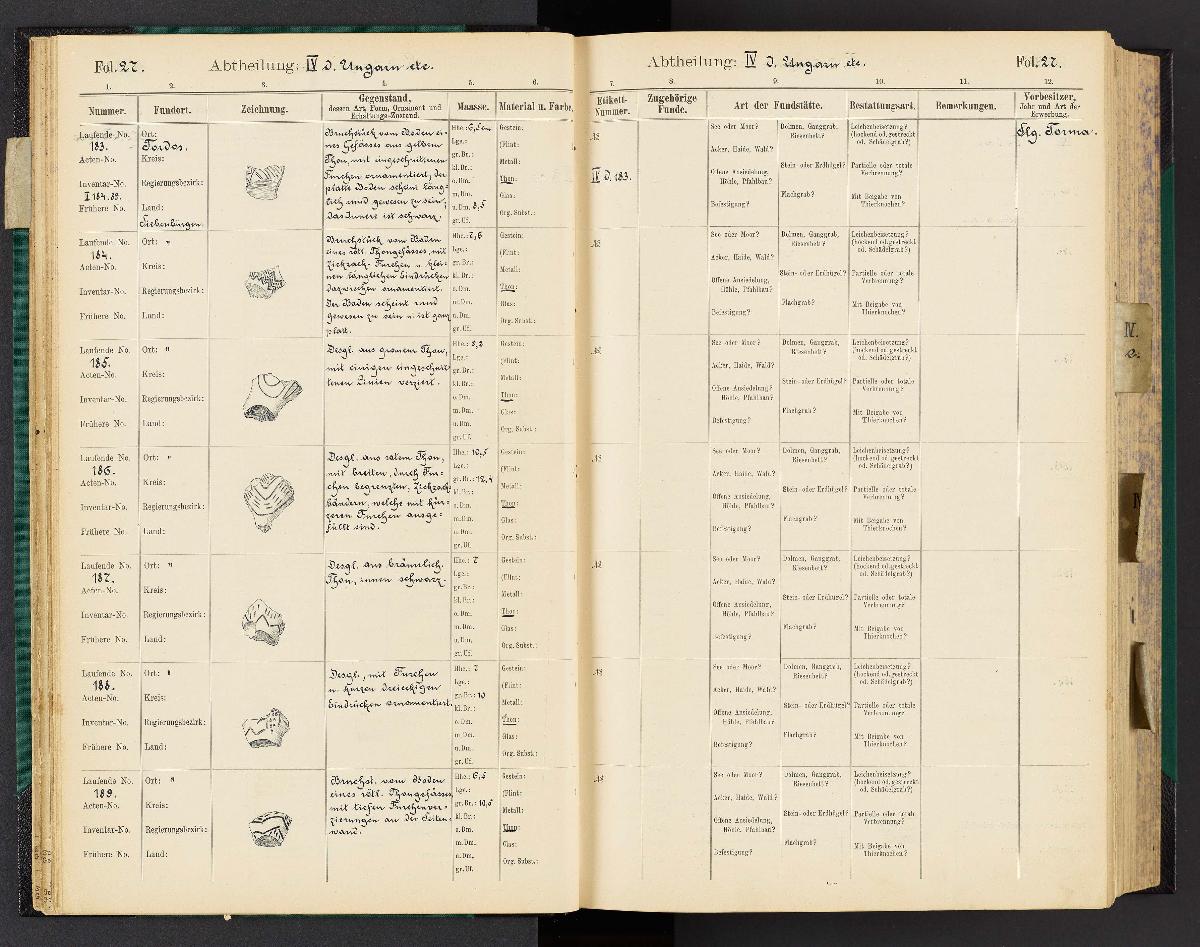 Fol. 27.
Abtheilung: IV d. Ungarn etc.
1. 2. 3. 4. 5. 6.
Nummer. Fundort. Zeichnung. Gegenstand, Maasse. Material u. Farbe.
dessen Art, Form, Ornament und
Erhaltungs-Zustand.
Laufende No. 183.
Acten-No.
Inventar-No. I 184.89.
Frühere No.
Ort: Tordos.
Kreis:
Regierungsbezirk:
Land: Siebenbürgen.
Bruchstück vom Boden ei-
nes Gefässes aus gelbem
Thon, mit eingeschnittenen
Furchen ornamentiert, der
platte Boden scheint läng-
lich rund gewesen zu sein,
das Innere ist schwarz.
Hhe.: 6,5 cm
Lge.:
gr. Br.:
kl. Br.:
o. Dm.
m. Dm.
u. Dm. 8,5
gr. Uf.
Gestein:
(Flint:
Metall:
Thon:
Glas:
Org. Subst.:
Laufende No. 184.
Acten-No.
Inventar-No.
Frühere No.
Ort: "
Kreis:
Regierungsbezirk:
Land:
Bruchstück vom Boden
eines rötl. Thongefässes, mit
Zickzack-Furchen u. klei-
nen länglichen Eindrücken
dazwischen ornamentiert.
Der Boden scheint rund
gewesen zu sein u. ist ganz
platt.
Hhe.: 7,6
Lge.:
gr. Br.:
kl. Br.:
o. Dm.
m. Dm.
u. Dm.
gr. Uf.
Gestein:
(Flint:
Metall:
Thon:
Glas:
Org. Subst.:
Laufende No. 185.
Acten-No.
Inventar-No.
Frühere No.
Ort: "
Kreis:
Regierungsbezirk:
Land:
Desgl. aus grauem Thon,
mit einigen eingeschnit-
tenen Linien verziert.
Hhe.: 8,2
Lge.:
gr. Br.:
kl. Br.:
o. Dm.
m. Dm.
u. Dm.
gr. Uf.
Gestein:
(Flint:
Metall:
Thon:
Glas:
Org. Subst.:
Laufende No. 186.
Acten-No.
Inventar-No.
Frühere No.
Ort: "
Kreis:
Regierungsbezirk:
Land:
Desgl. aus rotem Thon,
mit breiten, durch Fur-
chen begrenzten, Zickzack-
bändern, welche mit kür-
zeren Furchen ausge-
füllt sind.
Hhe.: 10,5
Lge.:
gr. Br.: 12,4
kl. Br.:
o. Dm.
m. Dm.
u. Dm.
gr. Uf.
Gestein:
(Flint:
Metall:
Thon:
Glas:
Org. Subst.:
Laufende No. 187.
Acten-No.
Inventar-No.
Frühere No.
Ort: "
Kreis:
Regierungsbezirk:
Land:
Desgl. aus bräunlich.
Thon, innen schwarz.
Hhe.: 7
Lge.:
gr. Br.:
kl. Br.:
o. Dm.
m. Dm.
u. Dm.
gr. Uf.
Gestein:
(Flint:
Metall:
Thon:
Glas:
Org. Subst.:
Laufende No. 188.
Acten-No.
Inventar-No.
Frühere No.
Ort: "
Kreis:
Regierungsbezirk:
Land:
Desgl., mit Furchen
u. kurzen dreieckigen
Eindrücken ornamentiert.
Hhe.: 7
Lge.:
gr. Br.: 10
kl. Br.:
o. Dm.
m. Dm.
u. Dm.
gr. Uf.
Gestein:
(Flint:
Metall:
Thon:
Glas:
Org. Subst.:
Laufende No. 189.
Acten-No.
Inventar-No.
Frühere No.
Ort: "
Kreis:
Regierungsbezirk:
Land:
Bruchst. vom Boden
eines rötl. Thongefässes
mit tiefen Furchenver-
zierungen an der Seiten-
wand.
Hhe.: 6,5
Lge.:
gr. Br.: 10,5
kl. Br.:
o. Dm.
m. Dm.
u. Dm.
gr. Uf.
Gestein:
(Flint:
Metall:
Thon:
Glas:
Org. Subst.:
Abtheilung: IV d. Ungarn etc.
Fol. 27.
7. 8. 9. 10. 11. 12.
Etikett-Nummer. Zugehörige Funde. Art der Fundstätte. Bestattungsart. Bemerkungen. Vorbesitzer,
Jahr und Art der
Erwerbung.
IV d. 183.
Slg. Torma.
See oder Moor? Dolmen, Ganggrab, Riesenbett? Leichenbeisetzung?
(hockend od. gestreckt
od. Schädelgrab?)
Acker, Haide, Wald?
Stein- oder Erdhügel? Partielle oder totale
Verbrennung?
Offene Ansiedelung,
Höhle, Pfahlbau?
Flachgrab? Mit Beigabe von
Thierknochen?
Befestigung?
See oder Moor? Dolmen, Ganggrab, Riesenbett? Leichenbeisetzung?
(hockend od. gestreckt
od. Schädelgrab?)
Acker, Haide, Wald?
Stein- oder Erdhügel? Partielle oder totale
Verbrennung?
Offene Ansiedelung,
Höhle, Pfahlbau?
Flachgrab? Mit Beigabe von
Thierknochen?
Befestigung?
See oder Moor? Dolmen, Ganggrab, Riesenbett? Leichenbeisetzung?
(hockend od. gestreckt
od. Schädelgrab?)
Acker, Haide, Wald?
Stein- oder Erdhügel? Partielle oder totale
Verbrennung?
Offene Ansiedelung?
Höhle, Pfahlbau?
Flachgrab? Mit Beigabe von
Thierknochen?
Befestigung?
See oder Moor? Dolmen, Ganggrab, Riesenbett? Leichenbeisetzung?
(hockend od. gestreckt
od. Schädelgrab?)
Acker, Haide, Wald?
Stein- oder Erdhügel? Partielle oder totale
Verbrennung?
Offene Ansiedelung?
Höhle, Pfahlbau?
Flachgrab? Mit Beigabe von
Thierknochen?
Befestigung?
See oder Moor? Dolmen, Ganggrab, Riesenbett? Leichenbeisetzung?
(hockend od. gestreckt
od. Schädelgrab?)
Acker, Haide, Wald?
Stein- oder Erdhügel? Partielle oder totale
Verbrennung?
Offene Ansiedelung,
Höhle, Pfahlbau?
Flachgrab? Mit Beigabe von
Thierknochen?
Befestigung?
See oder Moor? Dolmen, Ganggrab, Riesenbett? Leichenbeisetzung?
(hockend od. gestreckt
od. Schädelgrab?)
Acker, Haide, Wald?
Stein- oder Erdhügel? Partielle oder totale
Verbrennung?
Offene Ansiedelung,
Höhle, Pfahlbau?
Flachgrab? Mit Beigabe von
Thierknochen?
Befestigung?
See oder Moor? Dolmen, Ganggrab, Riesenbett? Leichenbeisetzung?
(hockend od. gestreckt
od. Schädelgrab?)
Acker, Haide, Wald?
Stein- oder Erdhügel? Partielle oder totale
Verbrennung?
Offene Ansiedelung,
Höhle, Pfahlbau?
Flachgrab? Mit Beigabe von
Thierknochen?
Befestigung?
IV.
c.